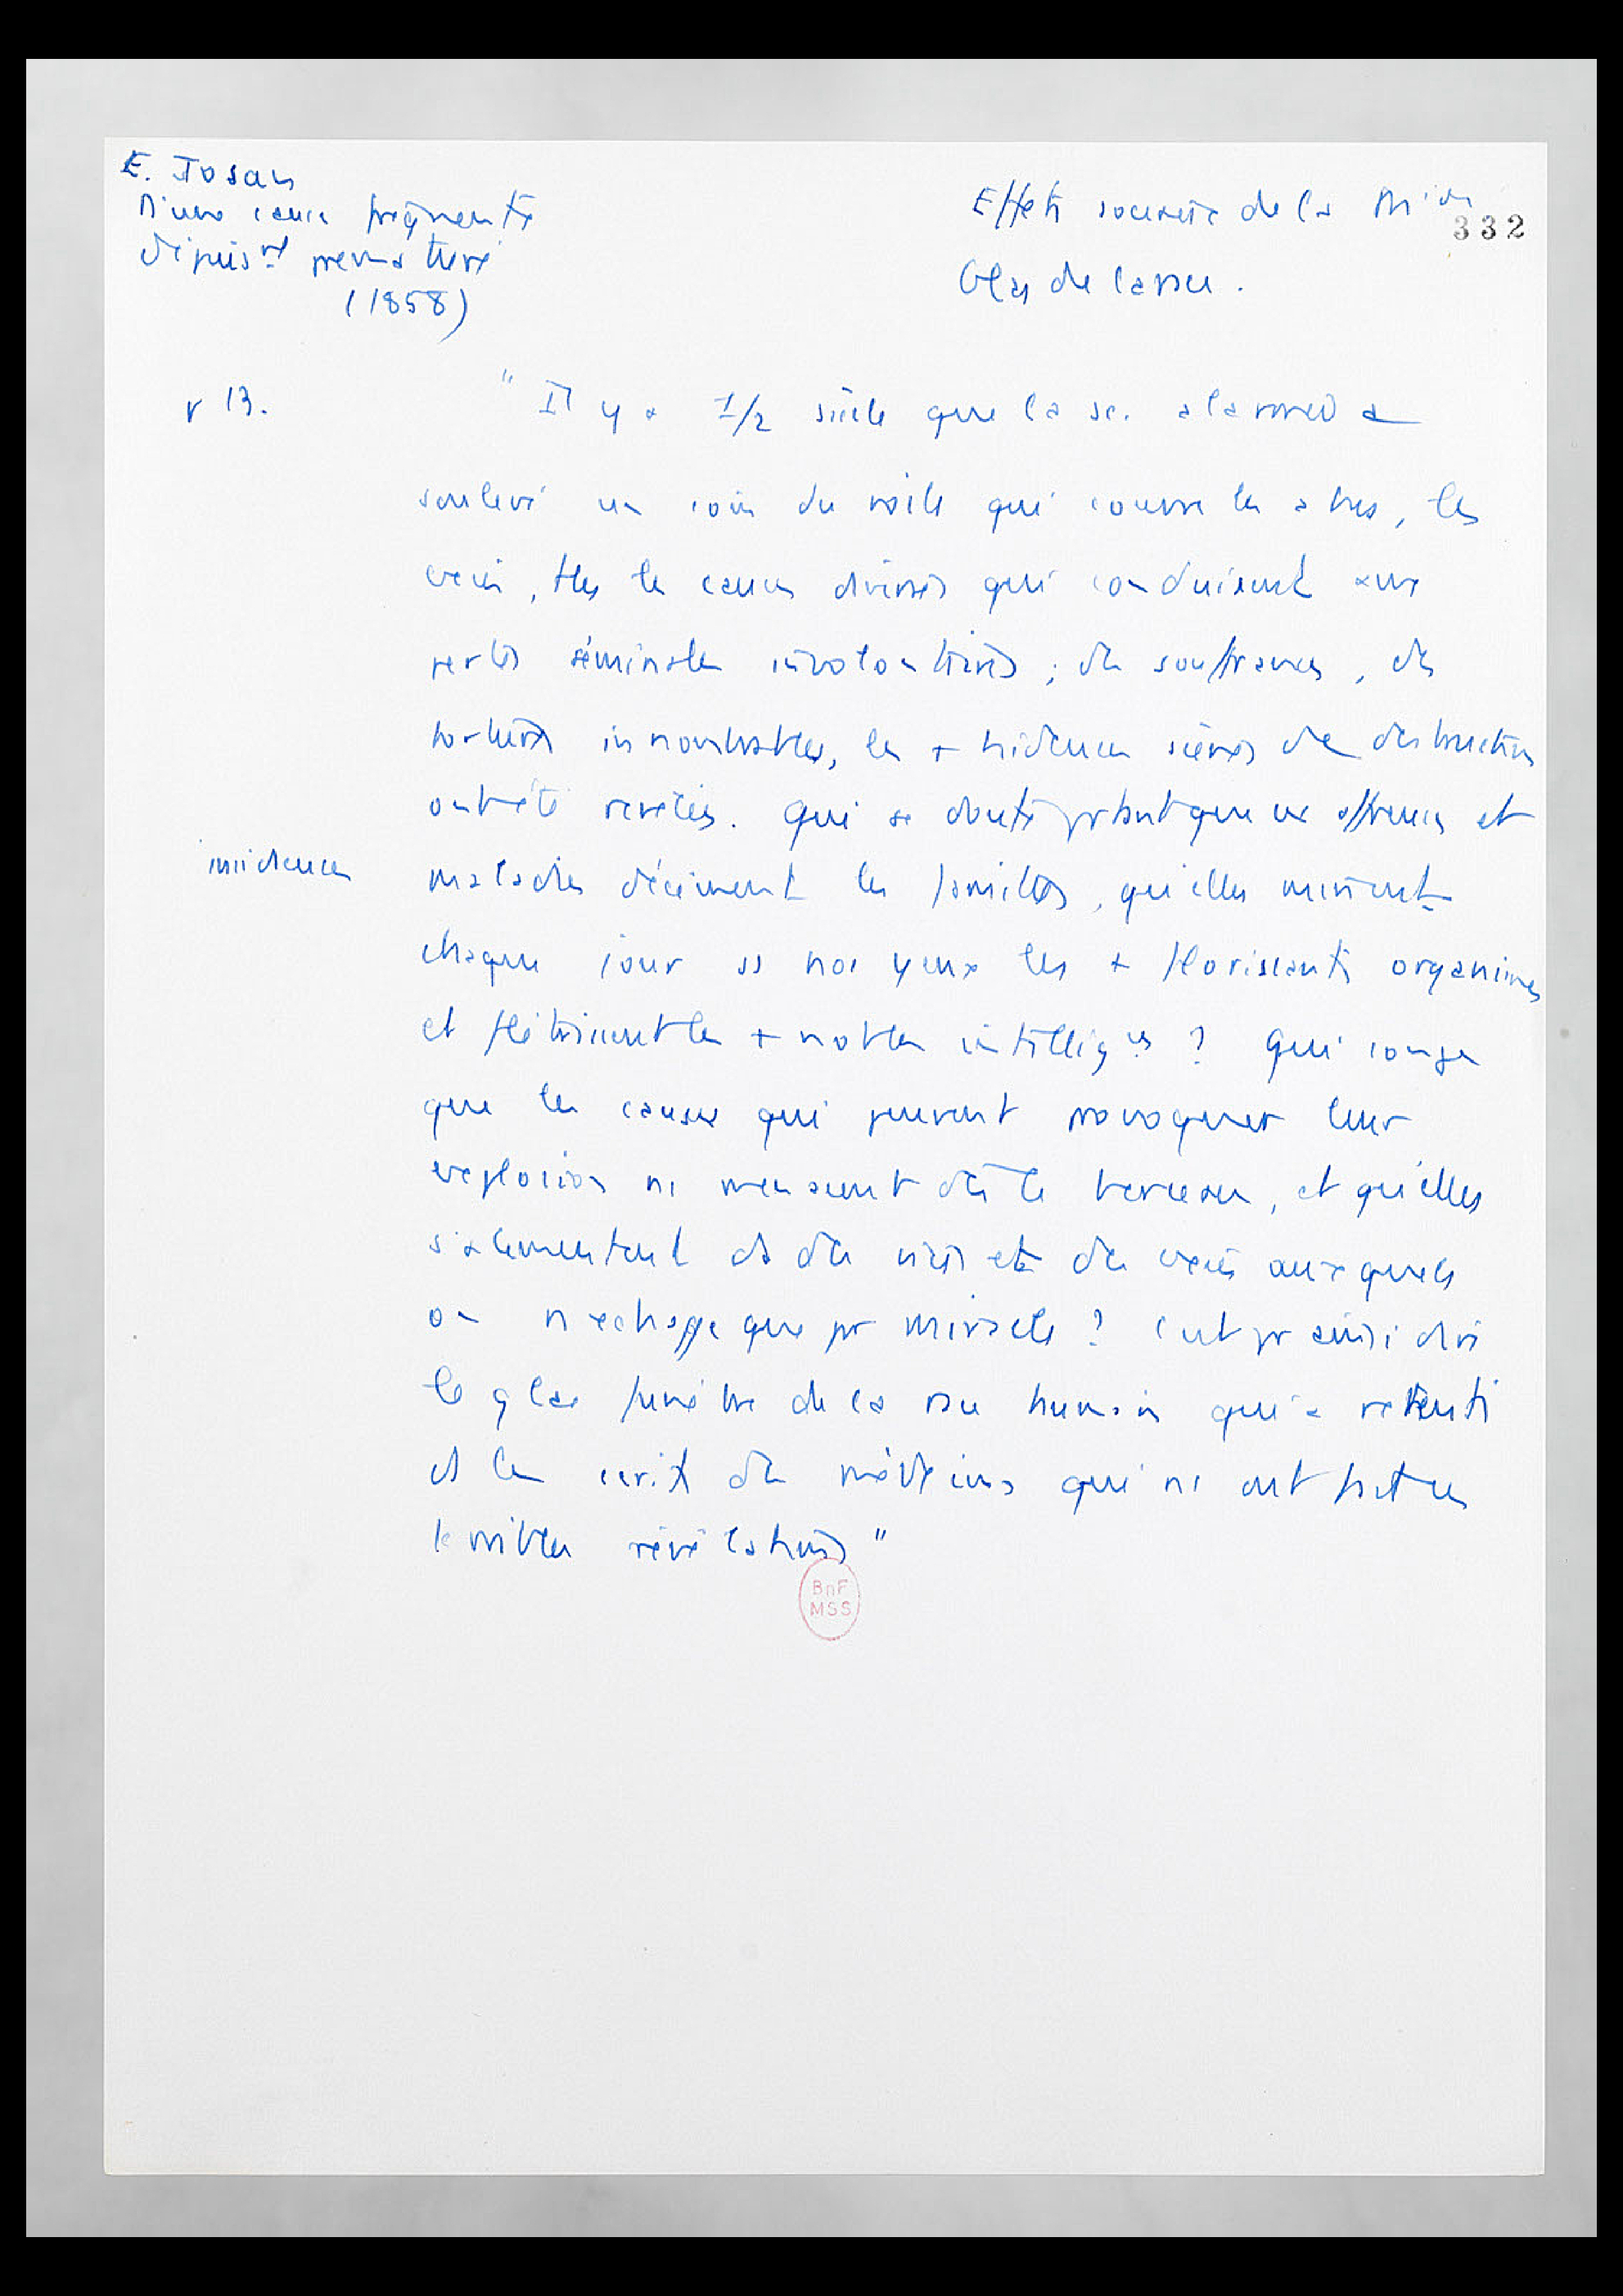 E. Josan
D'une cause fréquente
d'épuisnt prématuré
(1858)
Effets sociaux de la M
332
Glas de la race.
p 13.
" Il y a 1/2 siècle que la sc. alarmée a
soulevé un coin du voile qui couvre les abus, les
excès, ttes les causes diverses qui conduisent aux
pertes séminales involontaires ; des souffrances, des
tortures innombrables, les + hideuses scènes de destruction
ont été révélées. Qui se doute prtant que ces affreuses et
maladies déciment les familles, qu'elles minent
chaque jour ss nos yeux les + florissants organismes
et flétrissent les + nobles intelligces ? Qui songe
que les causes qui peuvent provoquer leur
explosion ns menacent dès le berceau, et qu'elles
s'alimentent ds des vices et des excès auxquels
on n'échappe que par miracle ? C'est pr ainsi dire
le glas funèbre de la race humaine qui a retenti
ds les écrits des médecins qui ns ont fait ces
terribles révélations "
BnF
MSS